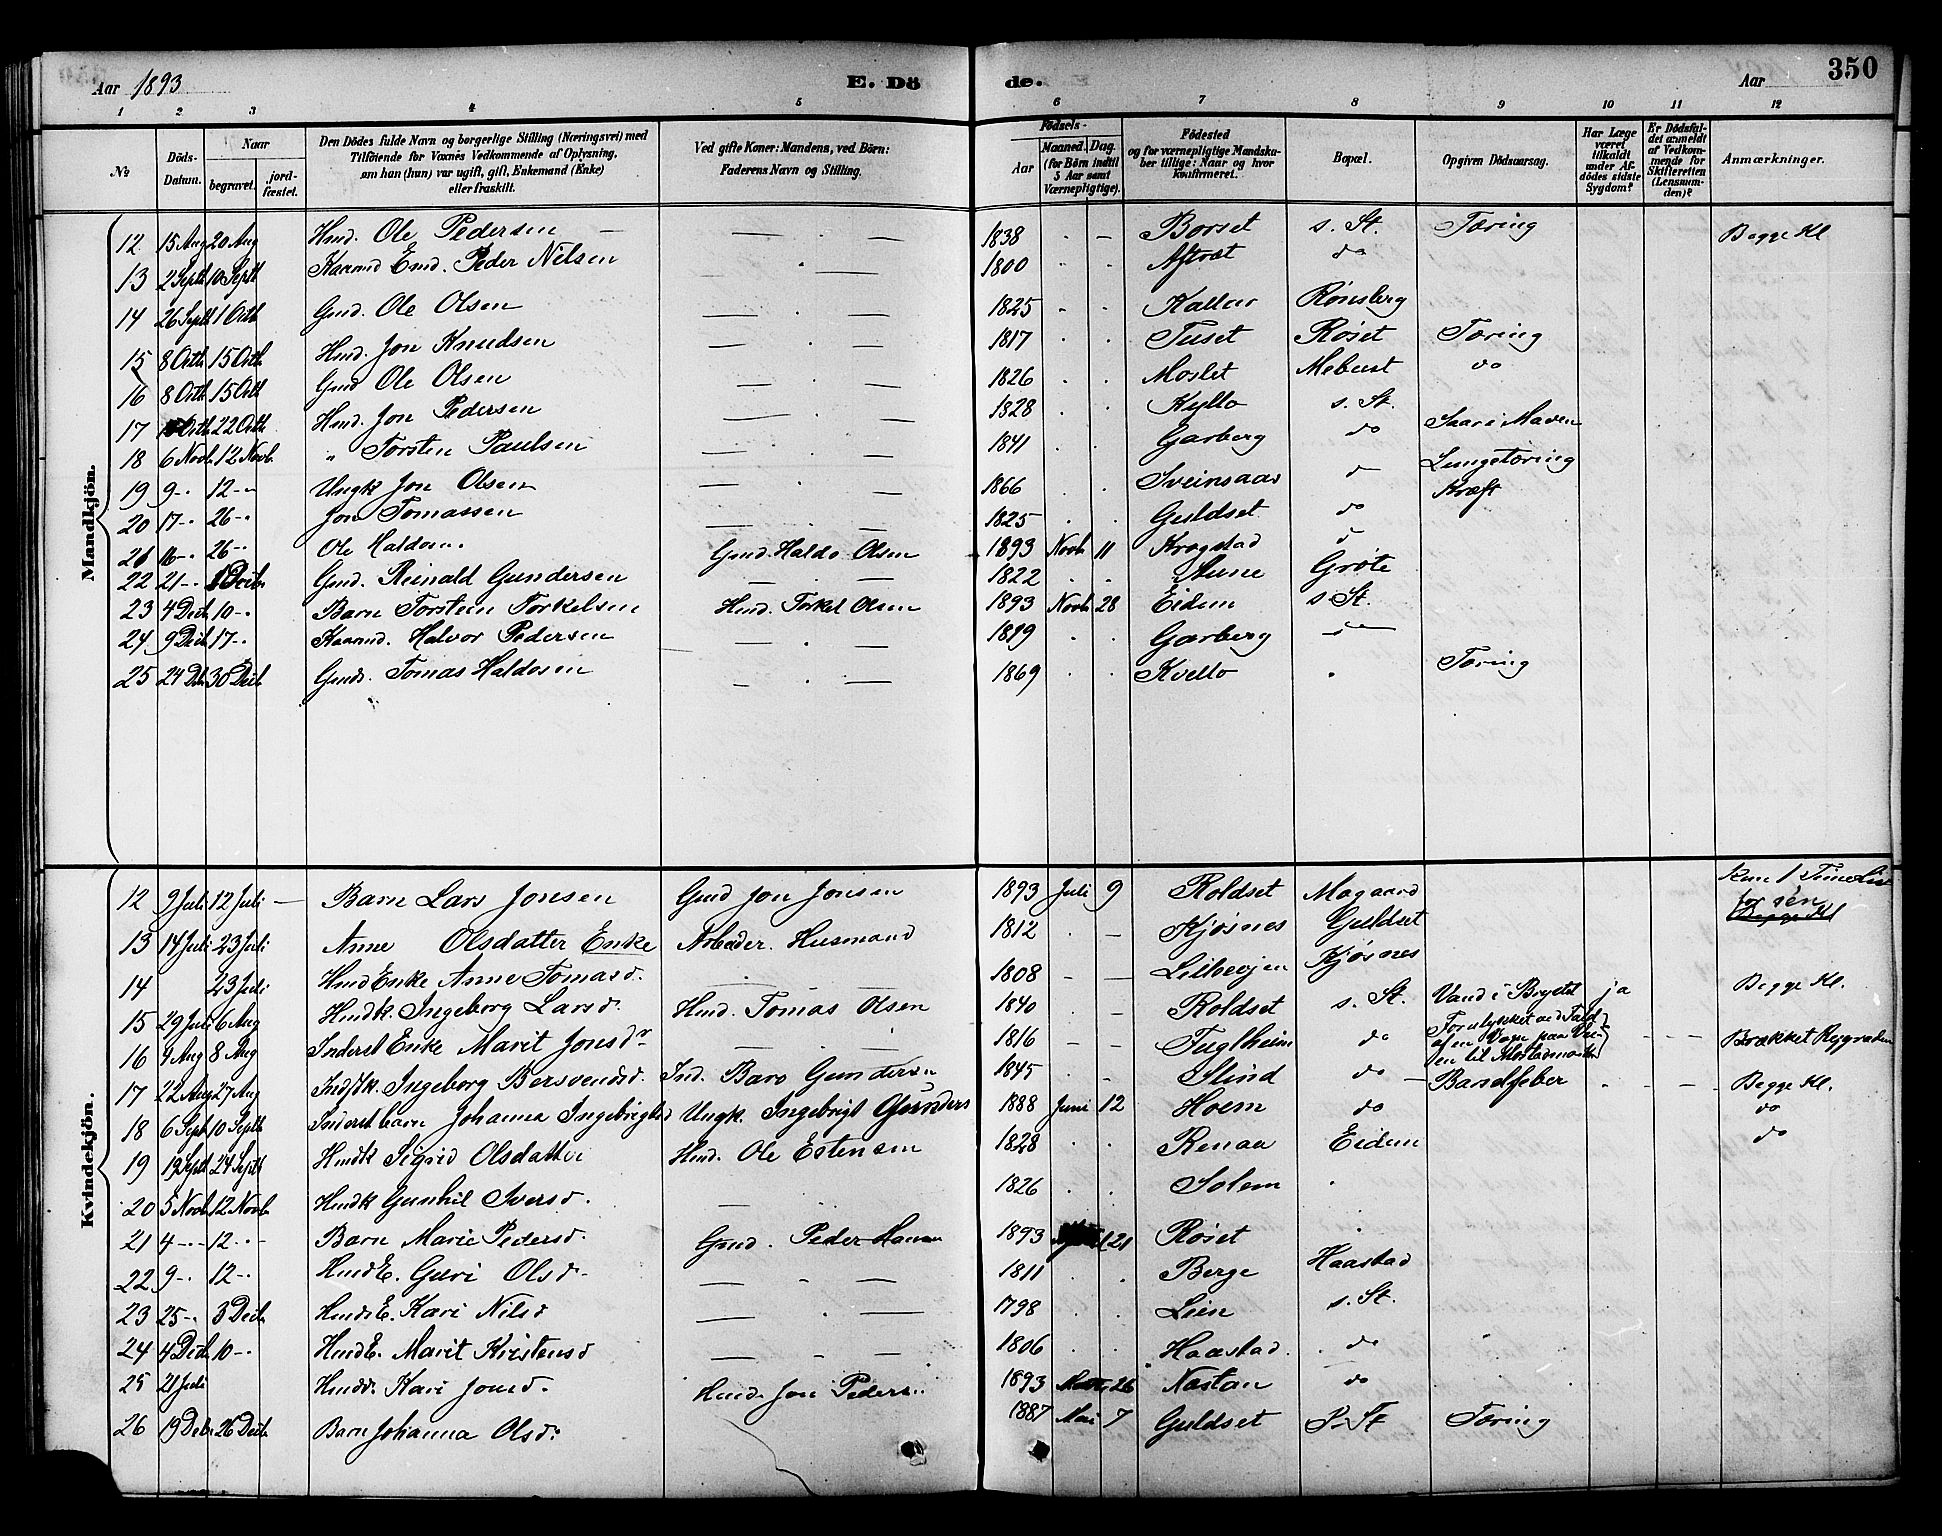 Aar 1893 E. Dö de. Aar 350
1 2 3 4 5 6 7 8 9 10 11 12
№ Döds-Datum. Naar begravet. jordfæstet. Den Dödes fulde Navn og borgerlige Stilling (Næringsvei) med Tilföiende for Voxnes Vedkommende af Oplysning, om han (hun) var ugift, gift, Enkemand (Enke) eller fraskilt. Ved gifte Koner: Mandens, ved Börn: Faderens Navn og Stilling. Födsels- Aar Maaned. Dag. (for Börn indtil 5 Aar samt Værnepligtige). Födested og for værnepligtige Mandskaber tillige: Naar og hvor konfirmeret. Bopæl. Opgiven Dödsaarsag. Har Læge været tilkaldt under Afdödes sidste Sygdom? Er Dödsfaldet anmeldt af Vedkommende for Skifteretten (Lensmanden)? Anmærkninger.
Mandkjön.
12 15 Aug 20 Aug Hmd. Ole Pedersen — — . — 1838 . — Borset s. St. Tæring Begge Kl
13 2 Septb 10 Septb Kaarmd Emd. Peder Nilsen — . — 1800 - . Aftret do
14 26 Septb 1 Octb Gmd. Ole Olsen — . — 1825 . . Kallar Rønsberg
15 8 Octb 15 Octb Hmd. Jon Knudsen — . — 1817 . . Tuset Røset Tæring
16 8 Octb 15 Octb Gmd Ole Olsen — . — 1826 . . Moslet Mebust do
17 Octb 22 Octb Hmd. Jon Pedersen — . — 1828 . . Kyllo s. St. Saar i Maven
18 6 Novb. 12 Novb. " Torsten Paulsen — . — 1841 . . Garberg do Lungetæring
19 9 -. 12 -- Ungk Jon Olsen — . — 1866 . . Sveinsaas do Kræft
20 17 -. 26 -. Jon Tomassen — . — 1825 . . Guldset do
21 16 -. 26 -. Ole Haldosen. Gmd. Haldo Olsen 1893 Novb 11 Krogstad
22 21 -. 1 Decb. Gmd. Reinald Gundersen — . — 1822 . . Aune Grøte
23 4 Decb. 10 -. Barn Torstein Torkelsen Hmd. Torkel Olsen 1893 Novb 28 Eidem s. St.
24 9 Decb. 17 -. Kaarmd. Halvor Pedersen — . — 1819 . . Garberg do
25 24 Db. 30 Decb Gmds. Tomas Haldosen — . — 1869 . . Kvello . Tæring
Kvindekjön.
12 9 Juli 12 Juli — Barn Lars Jonsen Gmd Jon Jonsen 1893 Juli 9 Roldset Mogaard Kun 1 Time
Begge Kl
13 14 Juli 23 Juli Anne Olsdatter Enke Arbeider. Husmand 1812 . — Kjøsnes Guldset
14 23 Juli Hmd Enke Anne Tomasd. — . — 1808 - — Lillevjen Kjøsnes Begge Kl.
15 29 Juli 6 Aug Hmdk. Ingeborg Larsd. Hmd. Tomas Olsen 1840 . — Roldset s. St. Vand i Brystet ja
16 4 Aug 8 Aug Inderst Enke Marit Jonsdr — . — 1816 - — Fuglheim do Forulykket ved Fald af en Vogn paa Veien til - - - Brækket Rygraden
17 22 Aug 27 Aug Indstk. Ingeborg Bersvendsd. Ind. Baro Gundersen 1845 . - Slind do — Barselfeber . - — - Begge Kl.
18 6 Sept 10 Septb Inderst barn Johanna Ingebrigtsd Ungk. Ingebrigt Gunders 1888 Juni 12 Hoem do do
19 19 Septb 24 Septb Hmdk Sigrid Olsdatter Hmd. Ole Estensen 1828 . . Renaa Eidem do
20 5 Novb. 12 Novb. Hmdk Gunhil Iversd. — . — 1826 . . Solem .
21 4 -. 12 -. Barn Marie Pedersd. Gmd. Peder Hansen 1893 21 Røset .
22 9 -. 12 -. Hmd E. Guri Olsd. — . — 1811 . . Berge Haastad
23 25 -. 3 Decb. Hmds E. Kari Nilsd — . — 1798 . . Lien s. St.
24 4 Decb. 10 -. Hmd E. Marit Kristensd — . — 1806 . . Haastad. do
25 21 Juli Hmdd. Kari Jonsd. Hmd. Jon Pedersen 1893 26 Nastan do
26 19 Deb. 26 Decb. Barn Johanna Olsd. 1887 Mai 7 Guldset s. St. Tæring